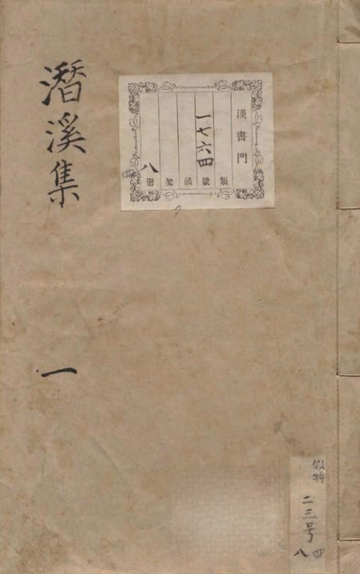 潛溪集
一
漢書門
類
一七六四
號
函
架
八
冊
二三号
八
四